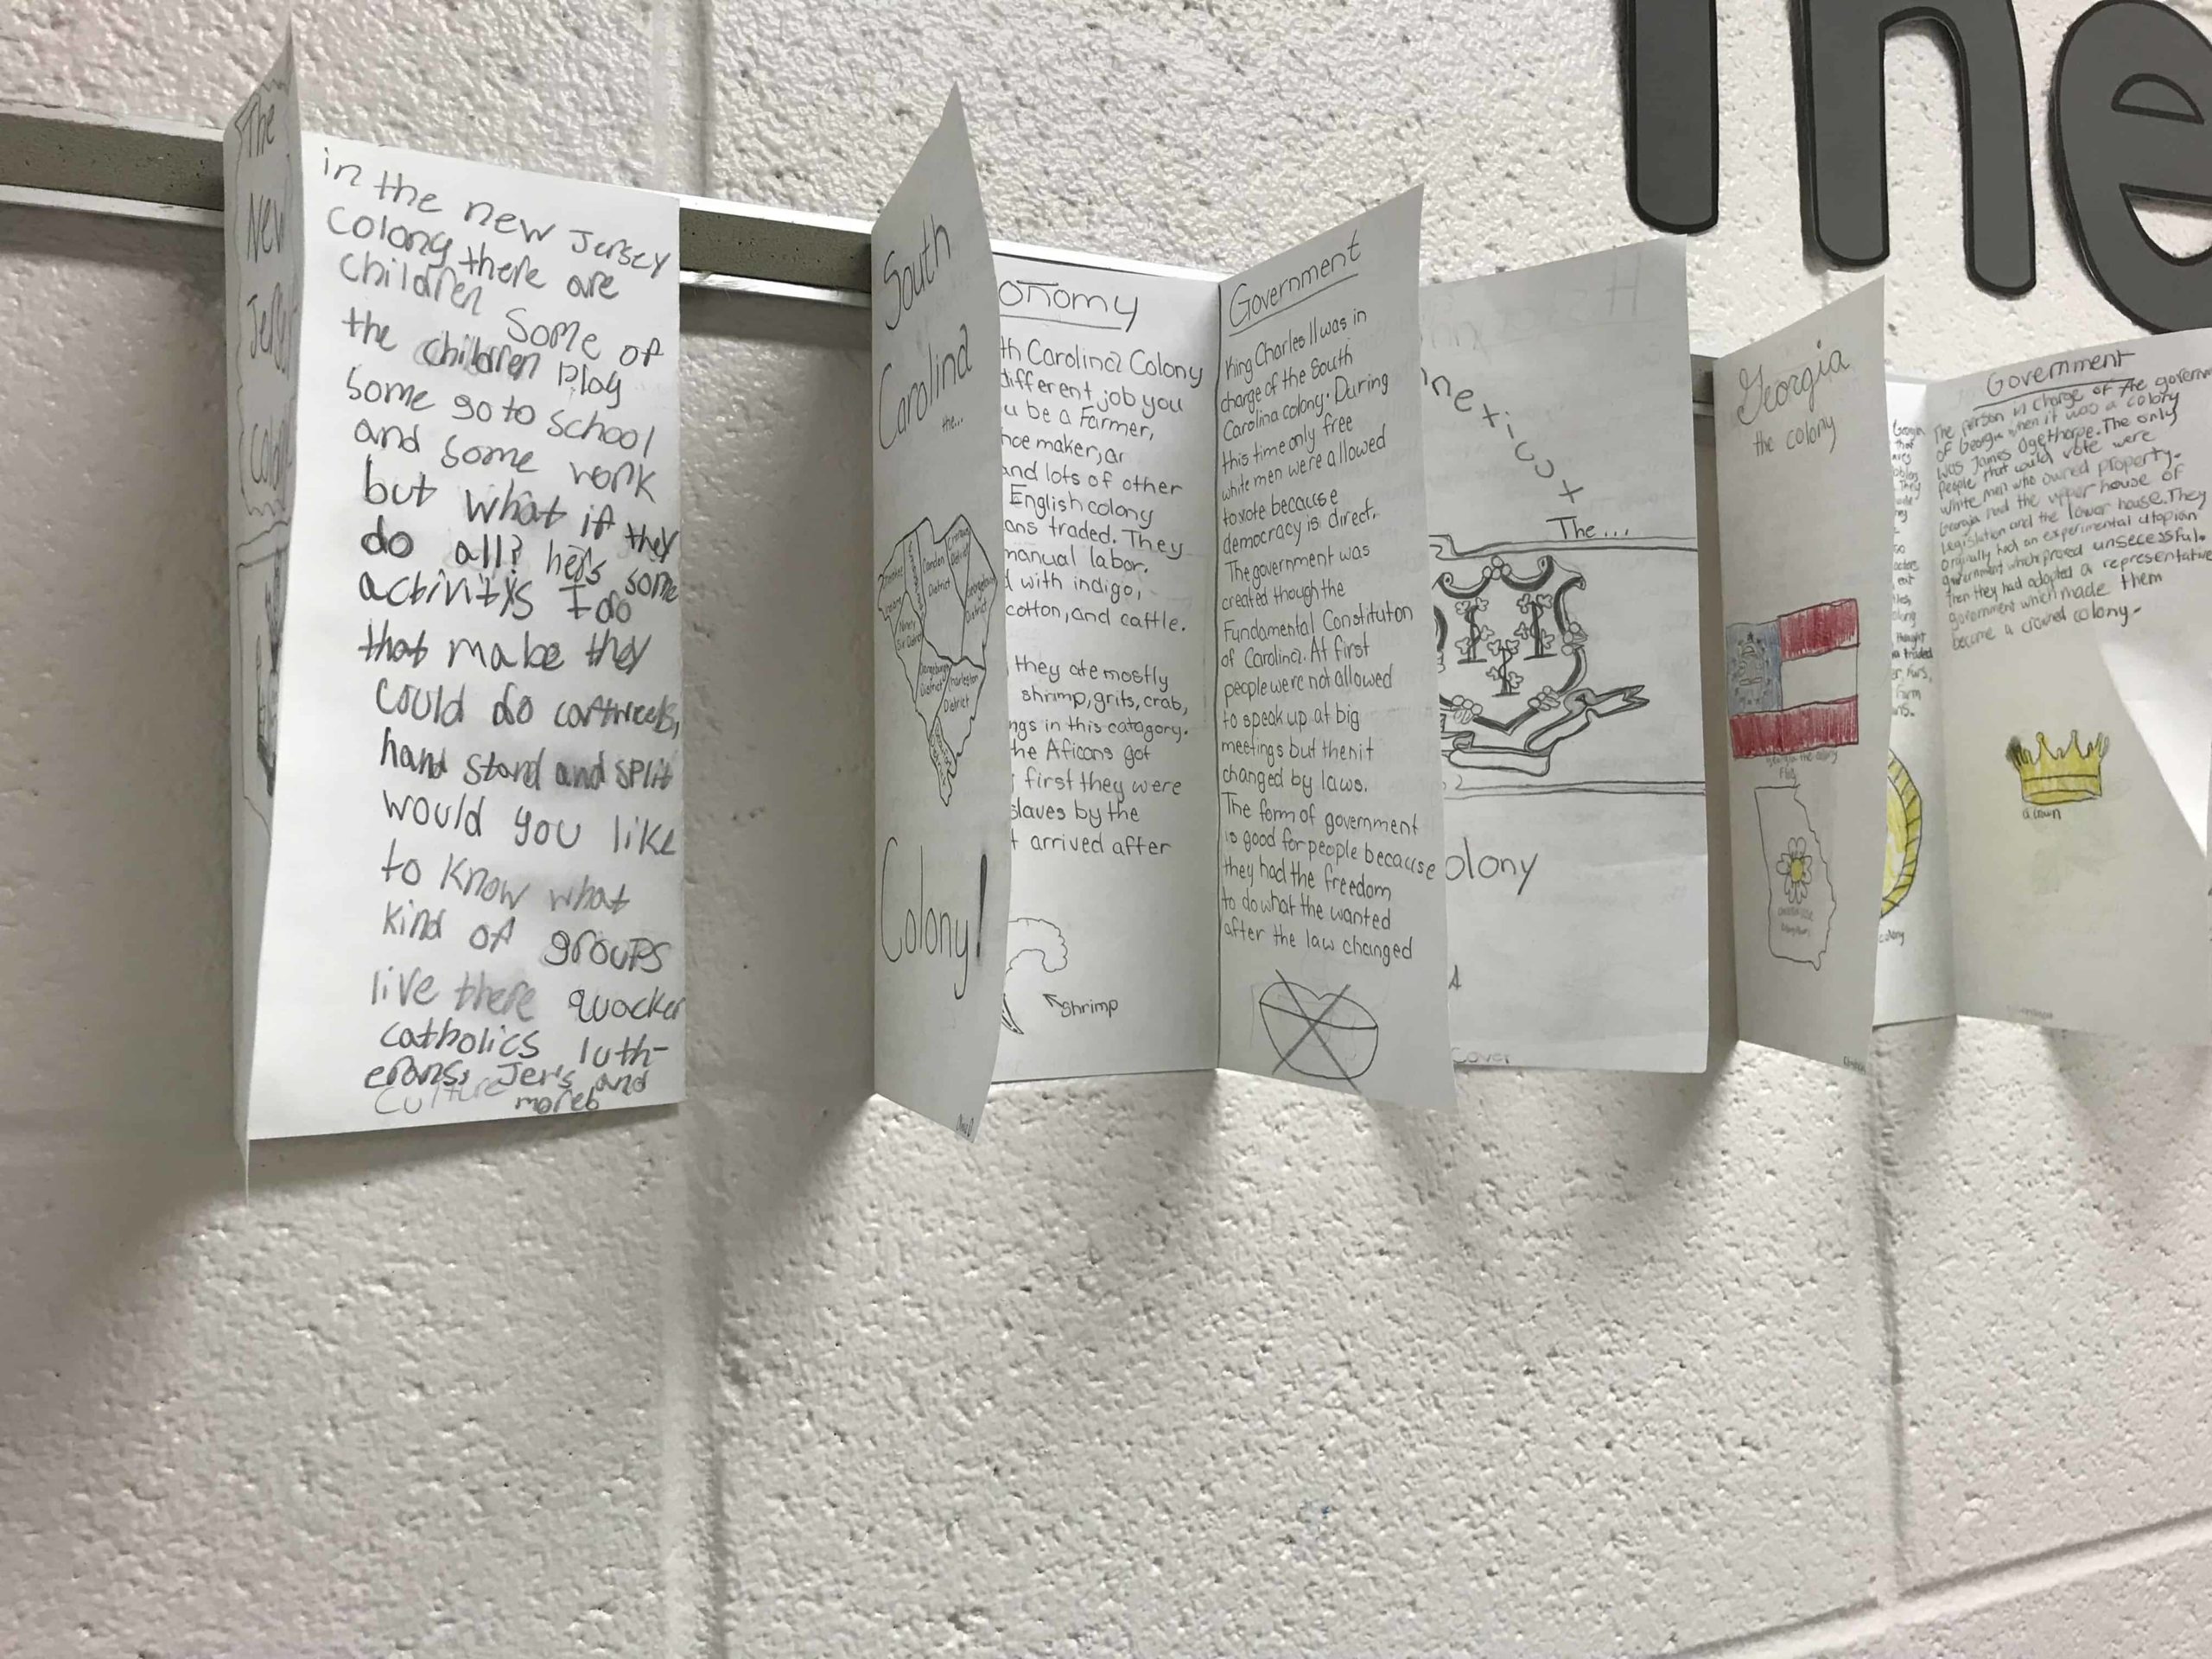 The
The
New
in the new Jersey
colony there are
children some of
the children play
some go to school
and some work
but what if they
do all? hers some
I do
that make they
could do
hand stand and split
would you like
to know what
kind of groups
live there quacker
catholics luth-
erans, Jers and
culture moreb
South
Carolina
the...
Camden
District
District
District
Charleston
District
Colony!
onomy
th Carolina Colony
different job you
u be a Farmer,
hoe maker, ar
and lots of other
English colony
ans traded. They
manual labor.
d with indigo,
cotton, and cattle.
they ate mostly
shrimp, grits, crab,
ngs in this catagory.
he Aficans got
first they were
slaves by the
t arrived after
shrimp
Government
King Charles II was in
charge of the South
Carolina colony. During
this time only free
white men were allowed
to vote because
democracy is direct.
The government was
created though the
Fundamental Constituton
of Carolina. At first
people were not allowed
to speak up at big
meetings but then it
changed by laws.
The form of government
is good for people because
they had the freedom
to do what the wanted
after the law changed
nnexicut
The...
olony
Cover
Georgia
the colony
Georgia the colony
Flag
colony
Government
The person in charge of the governm
of Georgia when it was a colony
was James Ogethorpe. The only
people that would vote were
white men who owned property.
Georgia had the upper house of
Legislation and the lower house. They
originally had an experimental utopian
government which proved unsecessful.
then they had adopted a representative
government which made them
become a crowned colony.
a crown